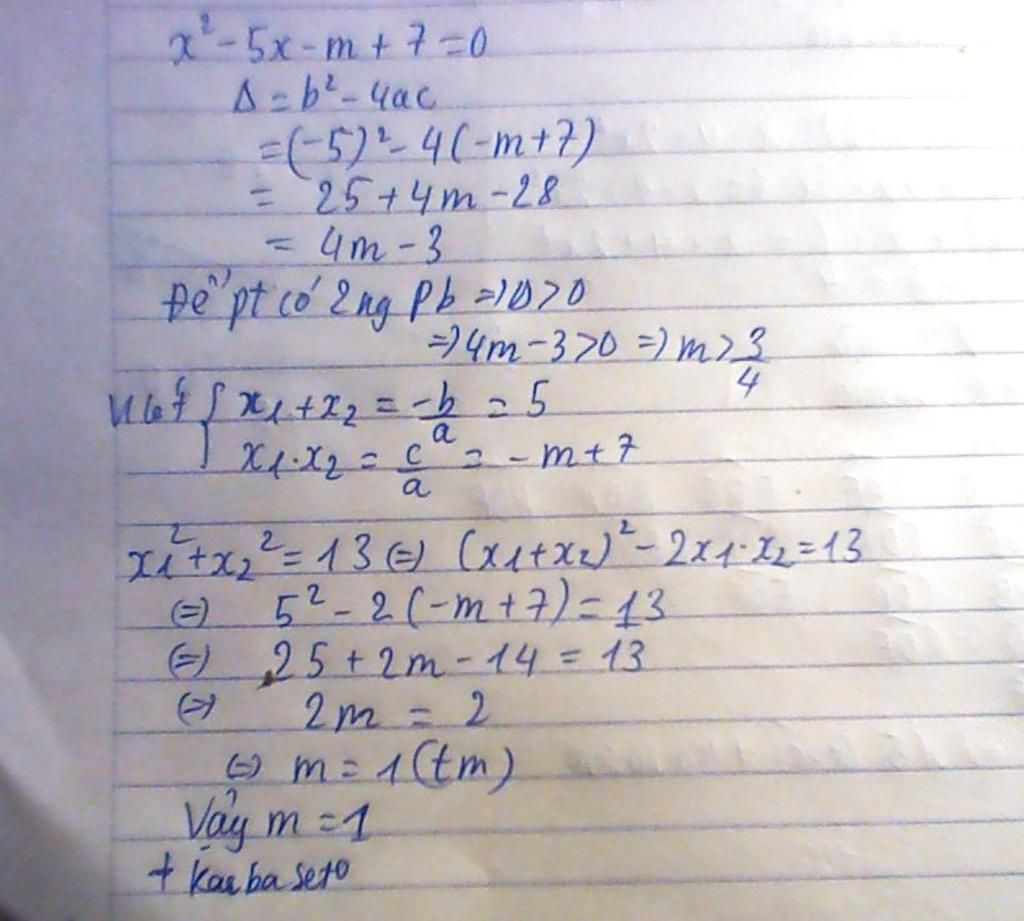 x² - 5x - m + 7 = 0
Δ = b² - 4ac
= (-5)² - 4(-m+7)
= 25 + 4m - 28
= 4m - 3
Để pt có 2 ng Pb => Δ > 0
=> 4m - 3 > 0 => m > 3/4
x₁ + x₂ = -b/a = 5
x₁.x₂ = c/a = -m + 7
x₁² + x₂² = 13 (=) (x₁+x₂)² - 2x₁.x₂ = 13
(=) 5² - 2(-m+7) = 13
(=) 25 + 2m - 14 = 13
(=) 2m = 2
(=) m = 1 (tm)
Vậy m = 1
+ Karbaseto